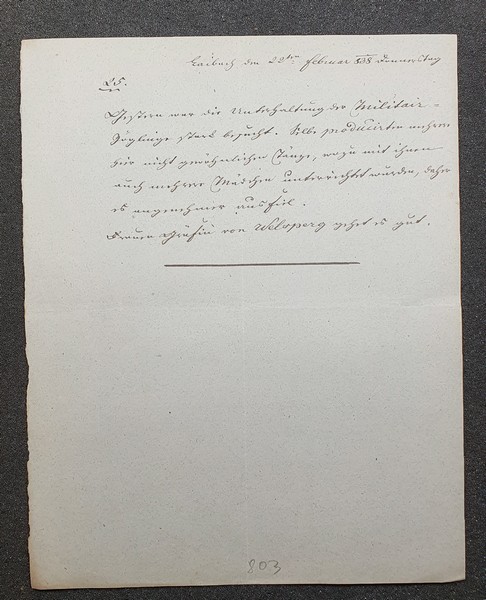 Laibach den 22ten Februar 838 Donnerstag
25.
Gestern war die Unterhaltung der Militair-
Zöglinge stark besucht. Selbe producirten mehrere
hier nicht gewöhnlichen Tänze, wozu mit ihnen
auch mehrere Mädchen unterrichtet wurden, daher
es angenehmer ausfiel.
Frauen Gräfin von Welsperg gehet es gut.
803